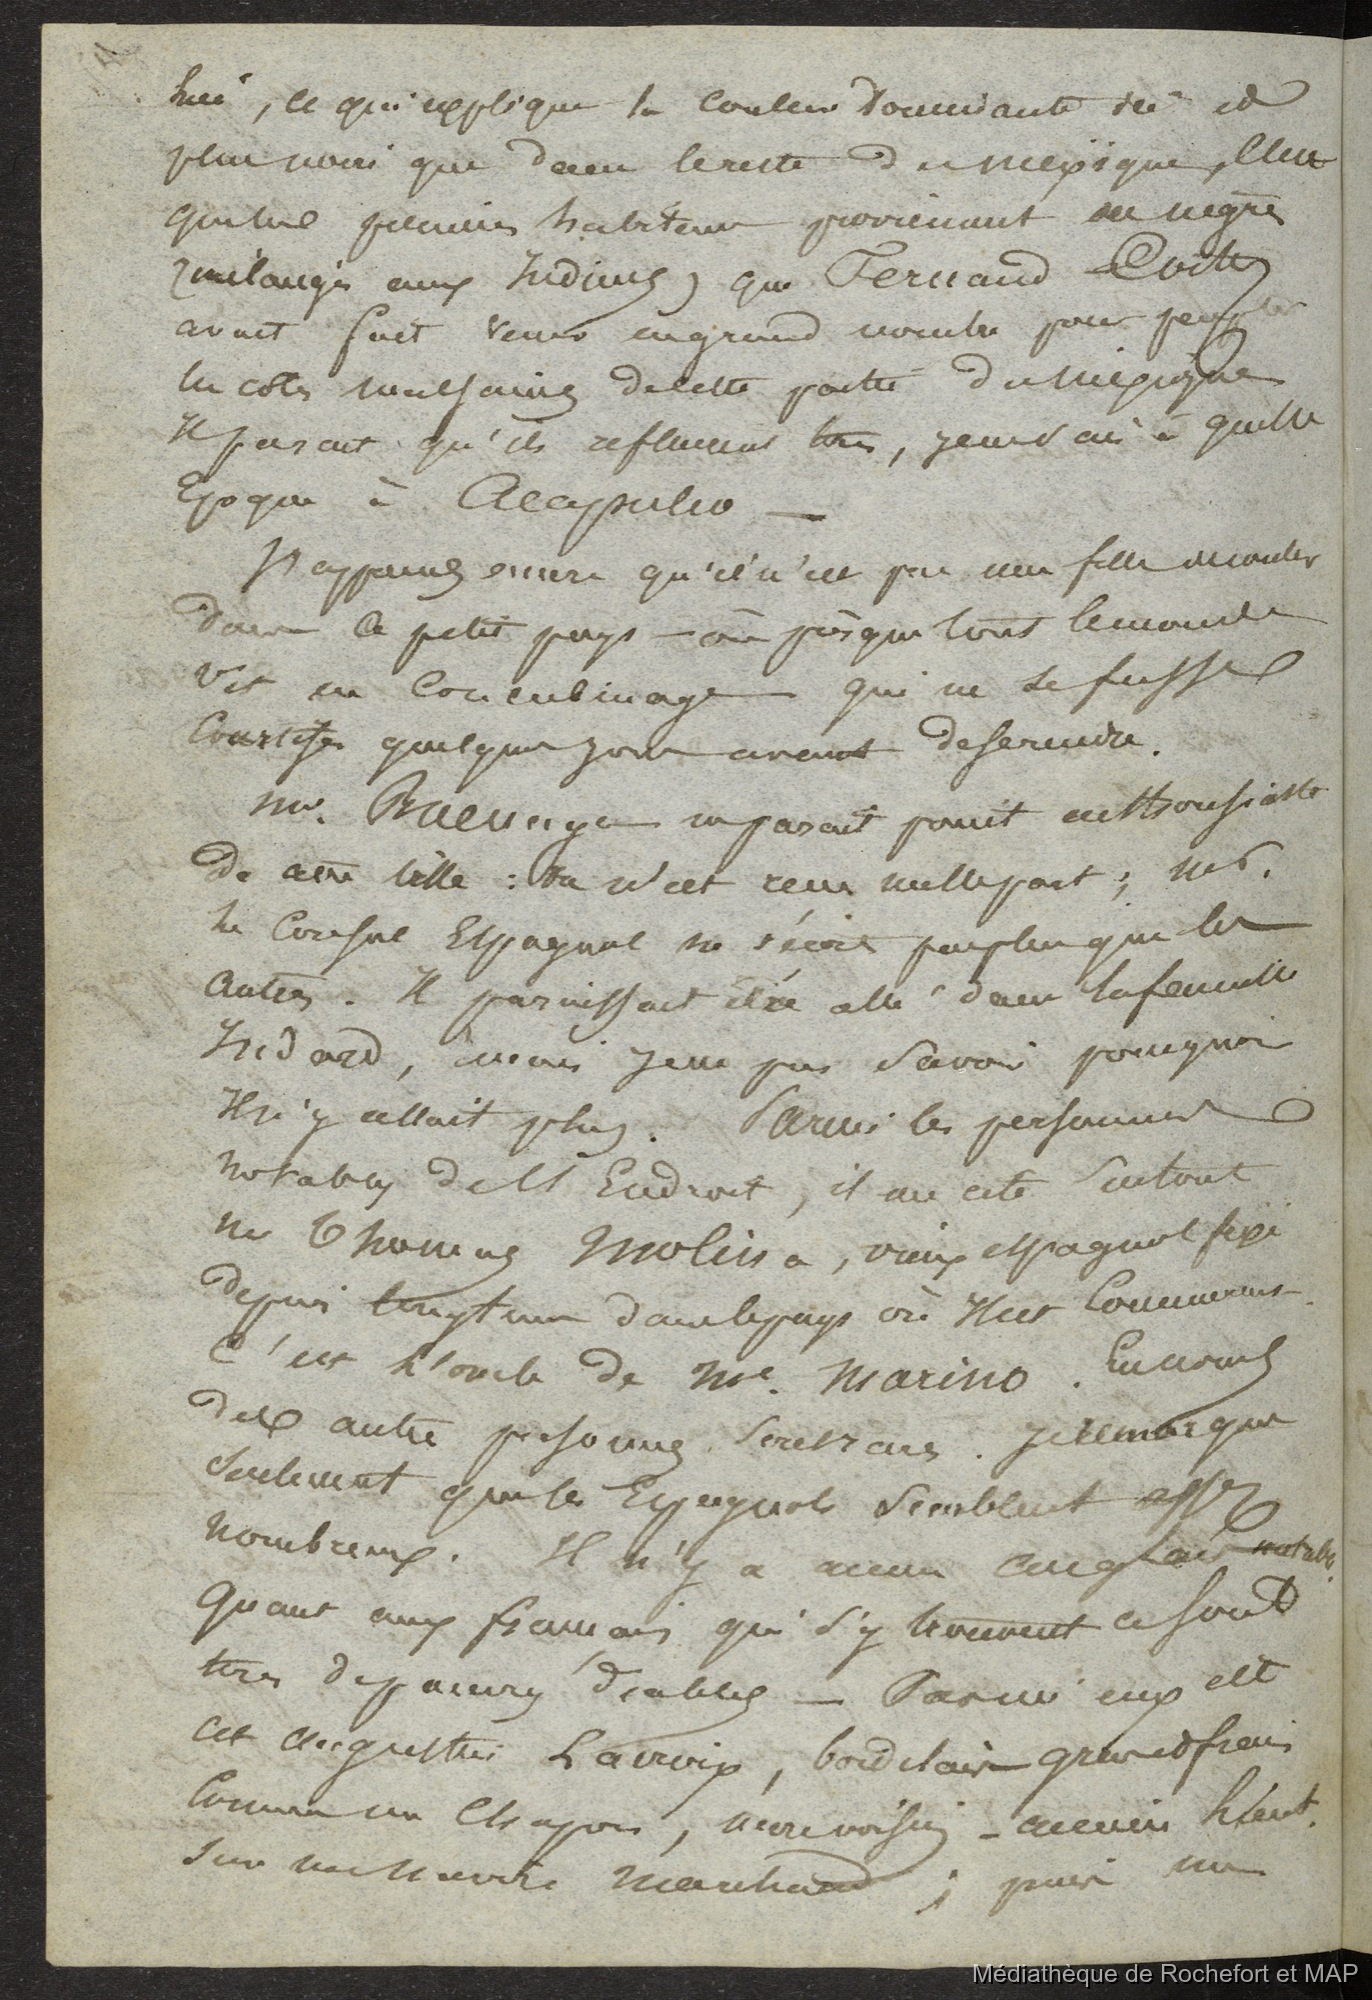 ici, ce qui explique la couleur dominante ici et
plus noire que dans le reste du mexique, C'est
que les premiers habitans provienent de negres
(mélangés aux Indiens) que Fernand Cortez
avait fait venir en grand nombre pour peupler
les cotes malsaines de cette partie du mexique
Il parait qu'ils refluerent tous, je ne sais à quelle
Epoque à Accapulco —
J'apprends encore qu'il n'est pas une fille
dans ce petit pays — où presque tout le monde
vit en concubinage qui ne se fusse
quelques jours avant de se rendre.
Mr. ne parait point enthousiaste
de cette ville : on n'est reçu nulle part ; Mr.
le Consul Espagnol ne reçoit pas plus que les
autres. Il paraissait être allé dans la famille
Indard, mais je ne pus savoir pourquoi
Il n'y allait plus. Parmi les personnes
notables de cet Endroit, il me cite surtout
Mr Thomas Molina, vieux espagnol fixé
depuis longtems dans le pays où Il est Commerçant.
C'est l'oncle de Me. Marino. Les noms
des autres personnes . Je remarque
seulement que les Espagnols semblent assez
nombreux. Il n'y a aucun anglais notable.
Quant aux français qui s'y trouvent ce sont
tous de pauvres diables — Parmi eux est
cet augustin Lacroix, bordelais grand
Comme un , notre voisin — ancien Lieut.
sur un navire marchand ; puis un